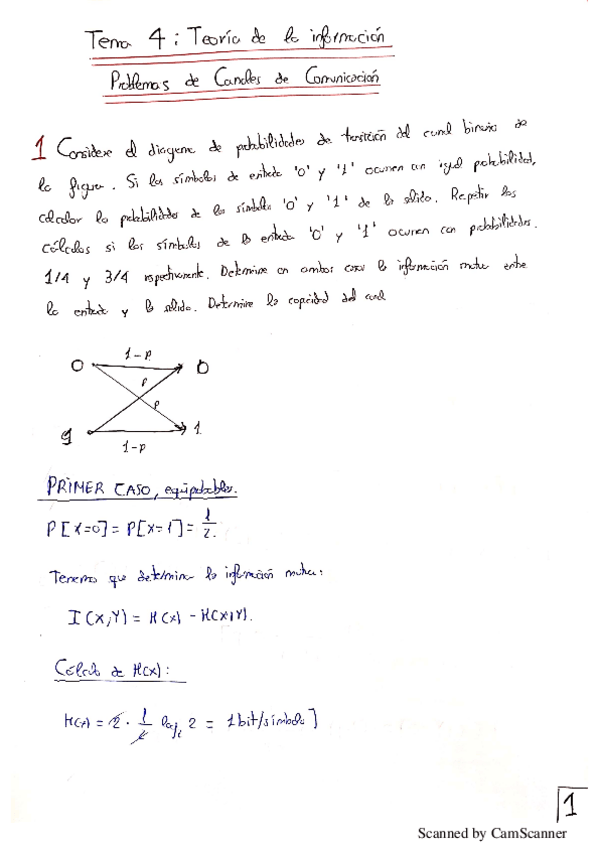 Tema 4: Teoría de la información
Problemas de Canales de Comunicación
1 Considere el diagrama de probabilidades de transición del canal binario de
la figura. Si los símbolos de entrada '0' y '1' ocurren con igual probabilidad,
calcular la probabilidad de los símbolos '0' y '1' de la salida. Repetir los
cálculos si los símbolos de la entrada '0' y '1' ocurren con probabilidades.
1/4 y 3/4 respectivamente. Determine en ambos casos la información mutua entre
la entrada y la salida. Determine la capacidad del canal
1-p
0 0
p
p
1 1
1-p
PRIMER CASO, equiprobables.
P[X=0] = P[X=1] = 1/2.
Tenemos que determinar la información mutua:
I(X,Y) = H(X) - H(X/Y).
Cálculo de H(X):
H(X) = 2 · 1/2 log2 2 = 1 bit/símbolo]
1
Scanned by CamScanner